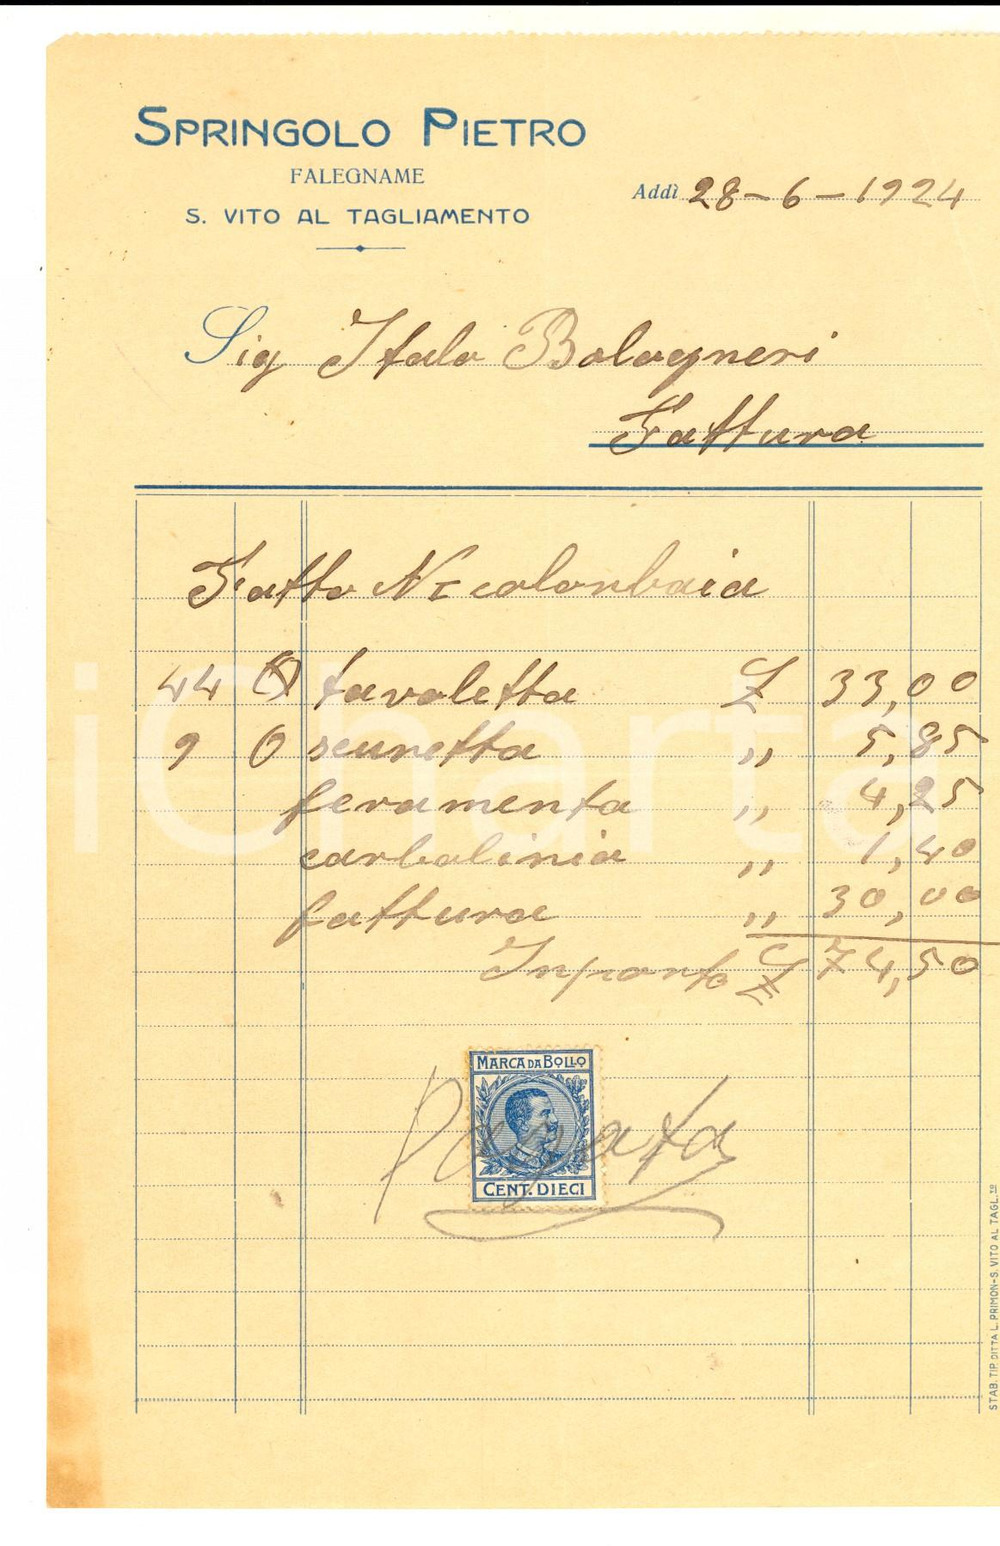 SPRINGOLO PIETRO
FALEGNAME
S. VITO AL TAGLIAMENTO
Addì 28-6-1924
Sig Italo Bolagneri
Fattura
Fatto N I colonbaia
44 tavoletta £ 33,00
9 0 scuretta ,, 5,85
feramenta ,, 4,25
carbolinia ,, 1,40
fattura ,, 30,00
Inporto £ 74,50
MARCA DA BOLLO
Pagata
CENT. DIECI
STAB. TIP. DITTA L. PRIMON-S. VITO AL TAGL.TO
iCharta